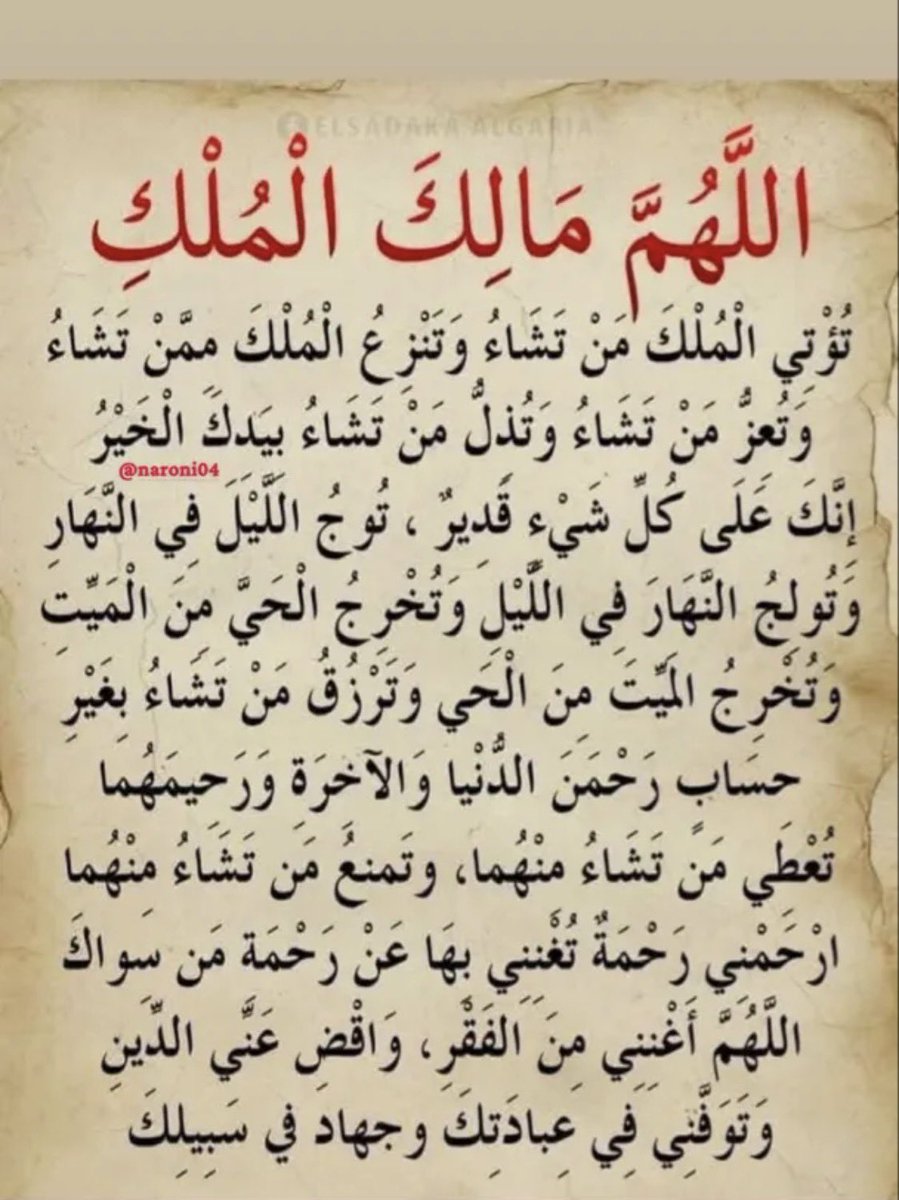 ELSADAKA ALGARIA
اللَّهُمَّ مَالِكَ الْمُلْكِ
تُؤْتِي الْمُلْكَ مَنْ تَشَاءُ وَتَنْزِعُ الْمُلْكَ ممَّنْ تَشَاءُ
وَتُعزُّ مَنْ تَشَاءُ وَتُذلُّ مَنْ تَشَاءُ بيَدكَ الْخَيْرُ
@naroni04
إنَّكَ عَلَى كُلِّ شَيْءٍ قَديرٌ ، تُوجُ اللَّيْلَ فِي النَّهَارِ
وَتُولِجُ النَّهَارَ فِي اللَّيْلِ وَتُخْرِجُ الْحَيَّ مِنَ الْمَيِّتِ
وَتُخْرِجُ المَيِّتَ مِنَ الْحَي وَتَرْزُقُ مَنْ تَشَاءُ بِغَيْرِ
حسَابٍ رَحْمَنَ الدُّنْيا وَالآخرَةِ وَرَحِيمَهُما
تُعْطَي مَنْ تَشَاءُ منْهُما، وتَمنعُ مَن تَشَاءُ منْهُما
ارْحَمْني رَحْمَةٌ تُغْنني بهَا عَنْ رَحْمَة مَن سَواكَ
اللَّهُمَّ أَغْنَنِي مِنَ الفَقْرِ، وَاقْضِ عَنَّي الدِّينِ
وَتَوَفَّنِي فِي عِبادَتِكَ وجهاد في سَبِيلِكَ